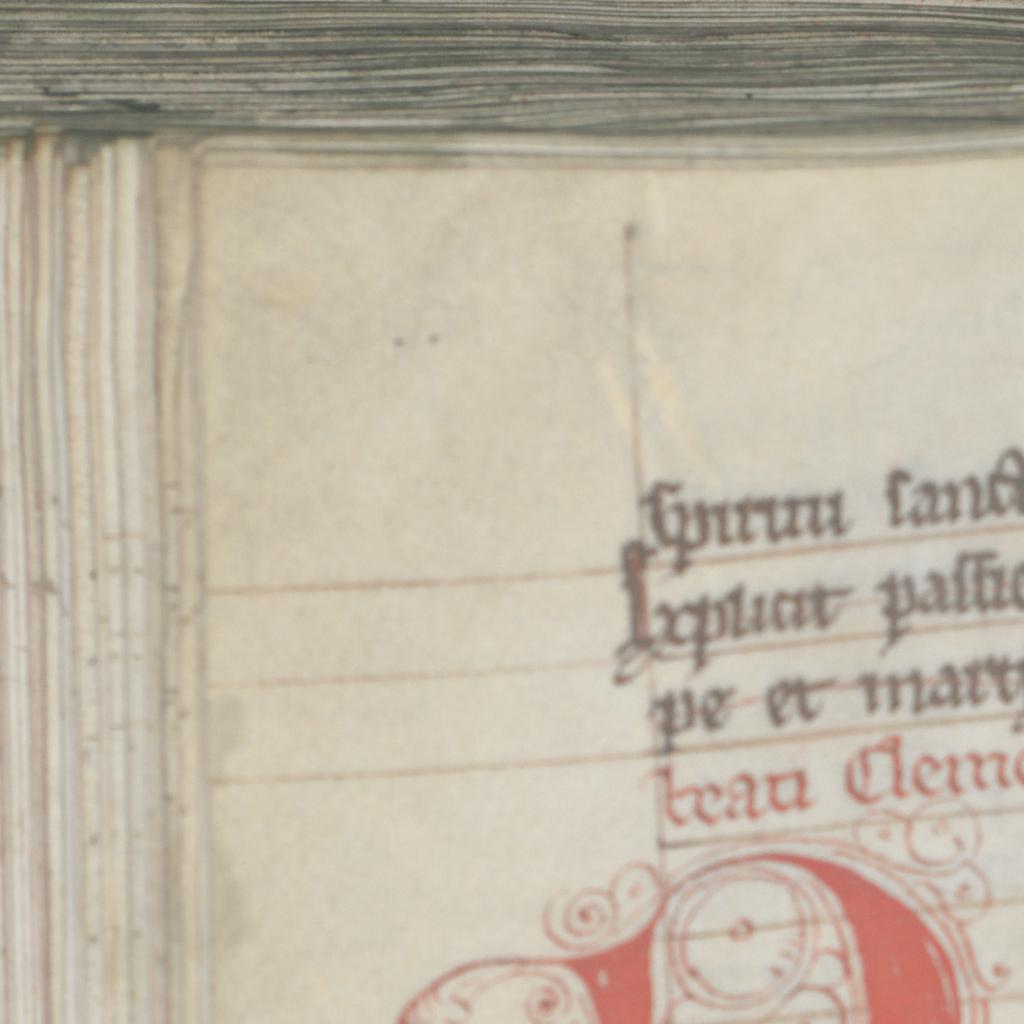 Spiritu sanct
Explicit passio
pe et marty
beati Cleme